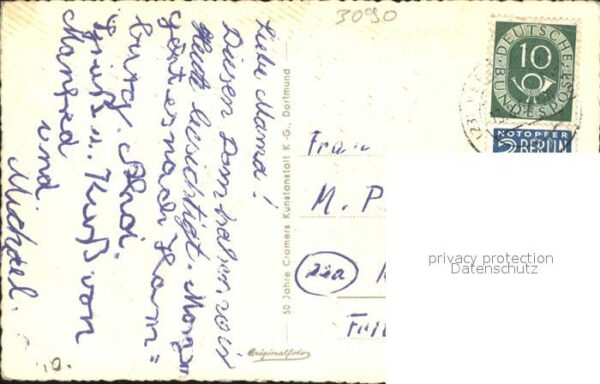 3090
Liebe Mama!
Diesen Dom haben wir
Heute besichtigt. Morgen
geht es nach Ham=
burg.
Gruß u. Kuß von
Manfred
und
Michael.
50 Jahre Cramers Kunstanstalt K.-G., Dortmund
Originalfoto
DEUTSCHE
BUNDESPOST
10
NOTOPFER
2 BERLIN
Frau
M. P
22a
privacy protection
Datenschutz